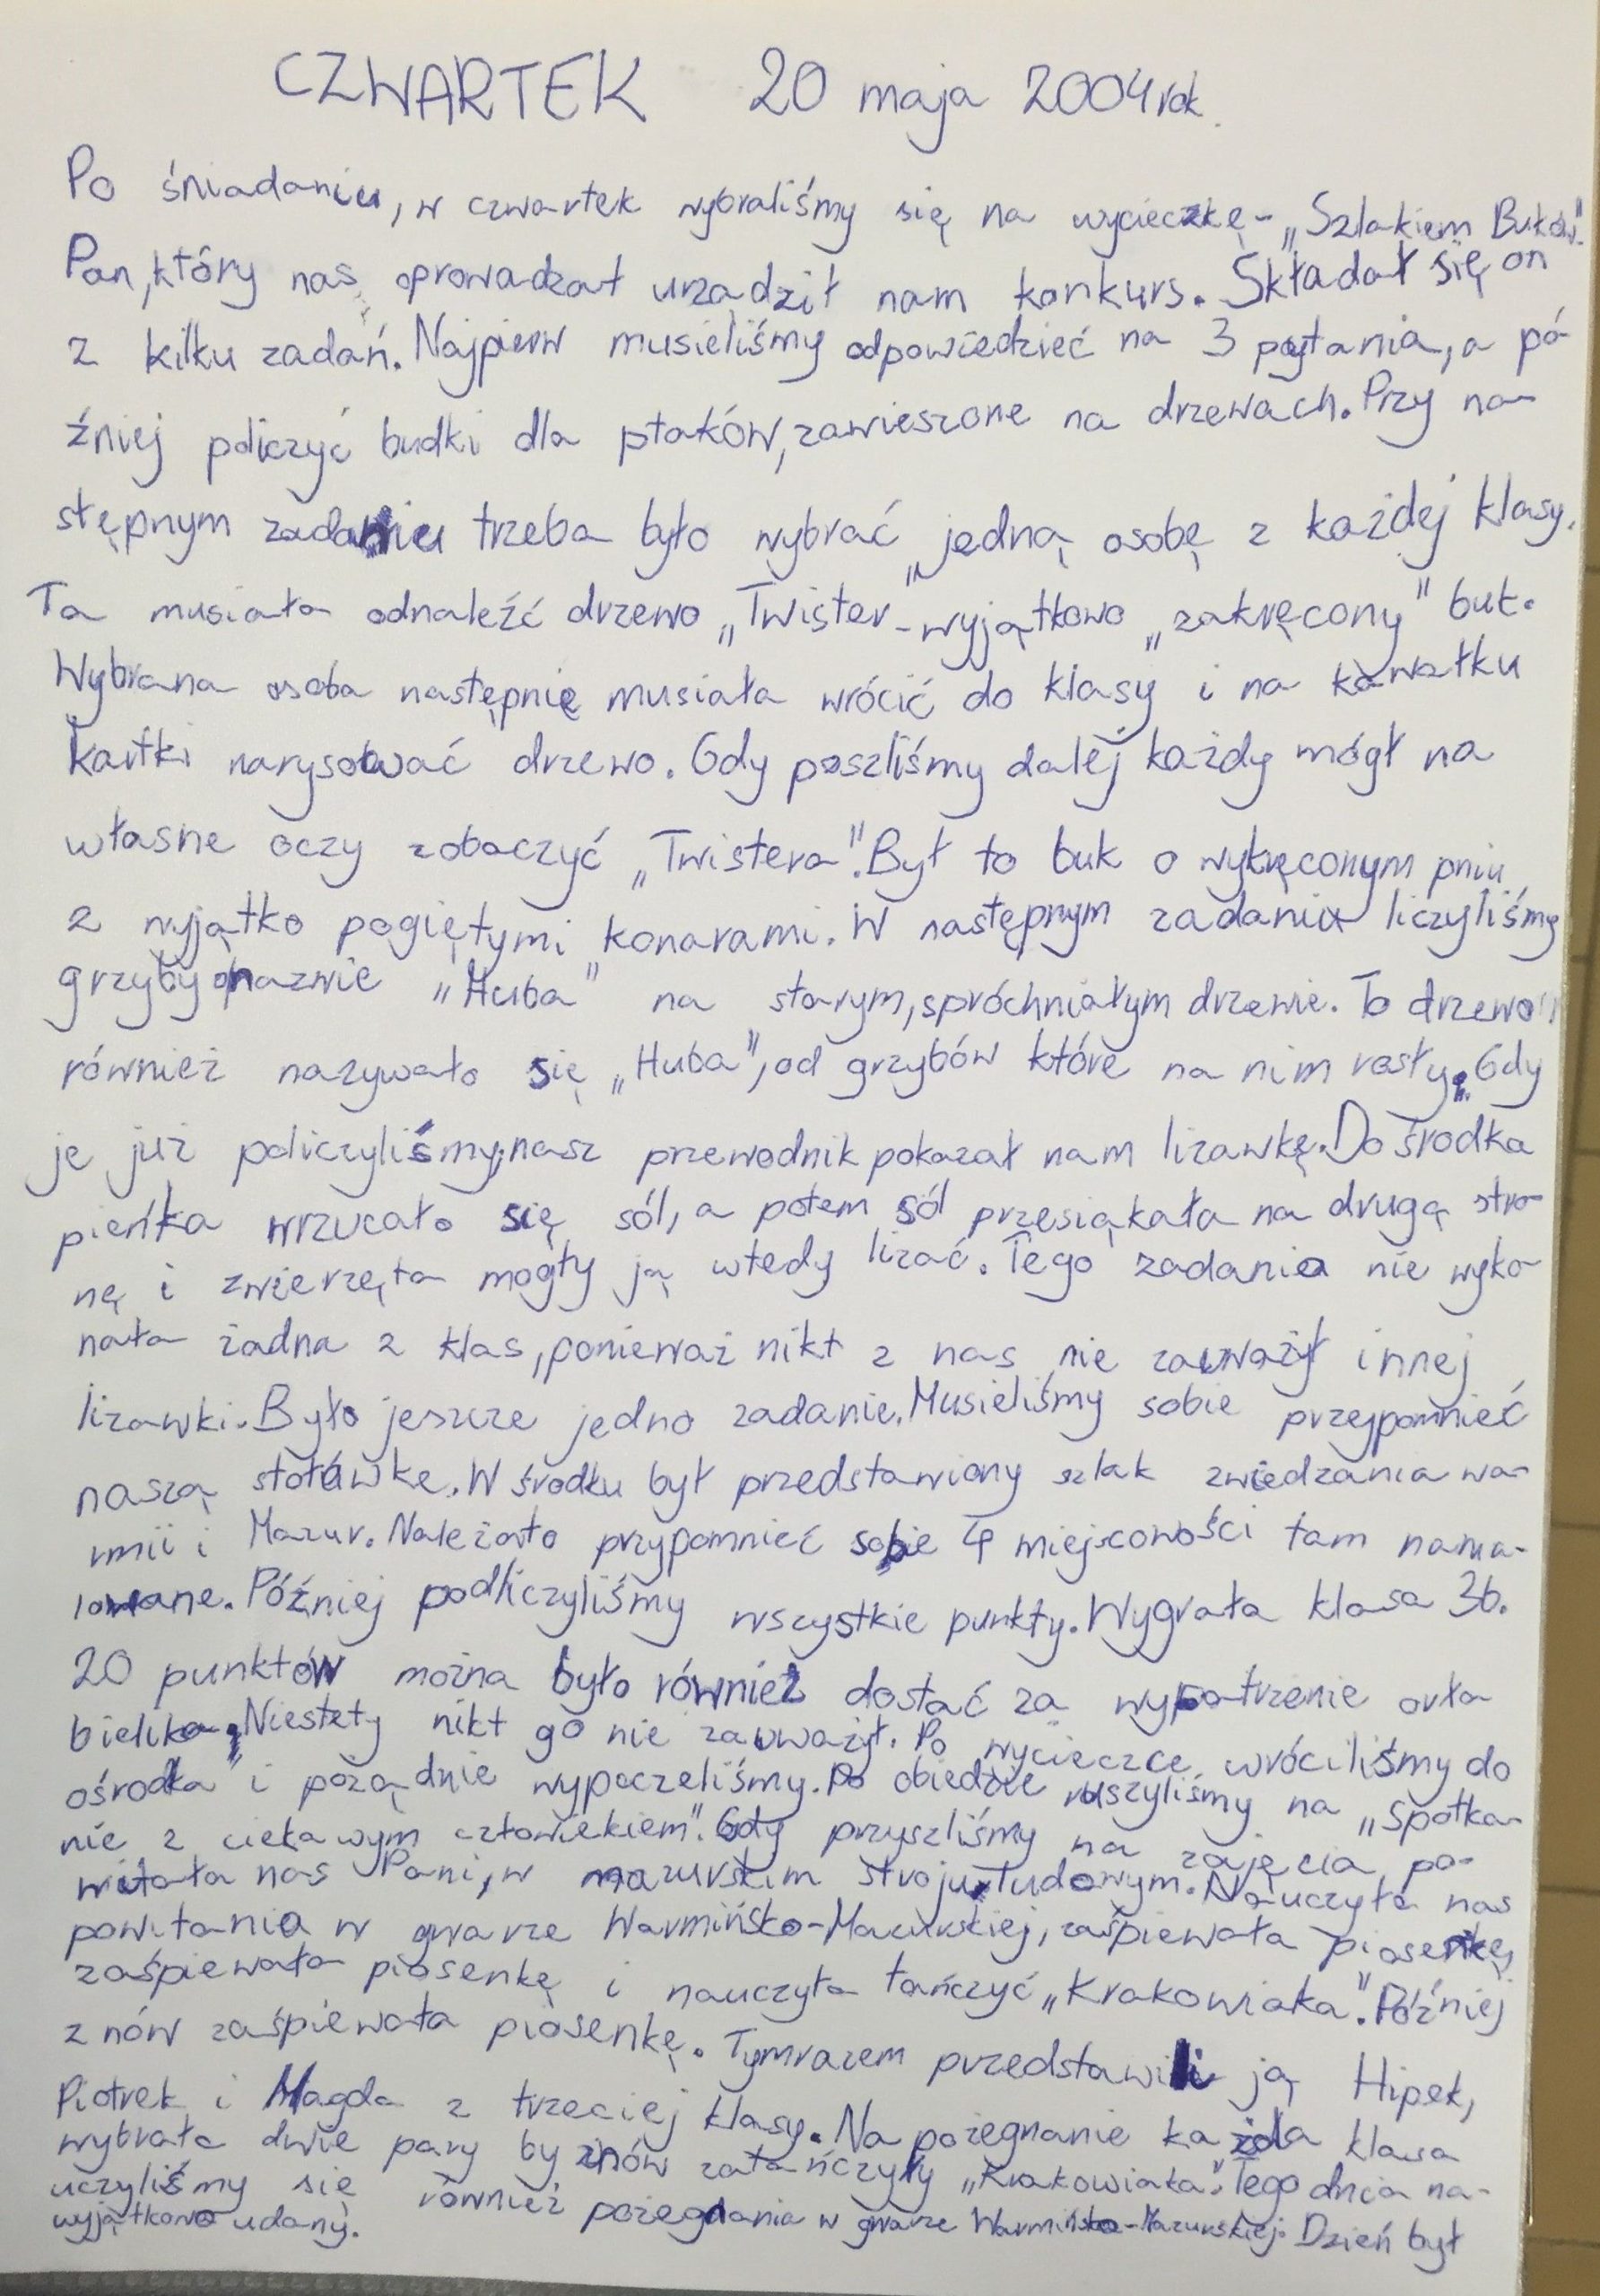 CZWARTEK 20 maja 2004 rok.
Po śniadaniu, w czwartek wybraliśmy się na wycieczkę - „Szlakiem Buków".
Pan, który nas oprowadzał urządził nam konkurs. Składał się on
z kilku zadań. Najpierw musieliśmy odpowiedzieć na 3 pytania, a pó-
źniej policzyć budki dla ptaków, zawieszone na drzewach. Przy na-
stępnym zadaniu trzeba było wybrać jedną osobę z każdej klasy.
Ta musiała odnaleźć drzewo „Twister" - wyjątkowo „zakręcony" buk.
Wybrana osoba następnie musiała wrócić do klasy i na kawałku
kartki narysować drzewo. Gdy poszliśmy dalej każdy mógł na
własne oczy zobaczyć „Twistera". Był to buk o wykręconym pniu
z wyjątko pogiętymi konarami. W następnym zadaniu liczyliśmy
grzyby o nazwie „Huba" na starym, spróchniałym drzewie. To drzewo
również nazywało się „Huba", od grzybów które na nim rosły. Gdy
je już policzyliśmy, nasz przewodnik pokazał nam lizawkę. Do środka
pieńka wrzucało się sól, a potem sól przesiąkała na drugą stro-
nę i zwierzęta mogły ją wtedy lizać. Tego zadania nie wyko-
nała żadna z klas, ponieważ nikt z nas nie zauważył innej
lizawki. Było jeszcze jedno zadanie. Musieliśmy sobie przypomnieć
naszą stołówkę. W środku był przedstawiony szlak zwiedzania wa-
rmii i Mazur. Należało przypomnieć sobie 4 miejscowości tam nama-
lowane. Później podliczyliśmy wszystkie punkty. Wygrała klasa 3b.
20 punktów można było również dostać za wypatrzenie orła
bielika. Niestety nikt go nie zauważył. Po wycieczce wróciliśmy do
ośrodka i pożądnie wypoczeliśmy. Po obiedzie ruszyliśmy na „spotka-
nie z ciekawym człowiekiem". Gdy przyszliśmy na zajęcia po-
witała nas Pani, w mazurskim stroju ludowym. Nauczyła nas
powitania w gwarze Warmińsko-Mazurskiej, zaśpiewała piosenkę,
zaśpiewała piosenkę i nauczyła tańczyć „Krakowiaka". Później
znów zaśpiewała piosenkę. Tymrazem przedstawili ją Hipek,
Piotrek i Magda z trzeciej klasy. Na pożegnanie każda klasa
wybrała dwie pary by znów zatańczyły „Krakowiaka". Tego dnia na-
uczyliśmy się również pożegnania w gwarze Warmińsko-Mazurskiej. Dzień był
wyjątkowo udany.